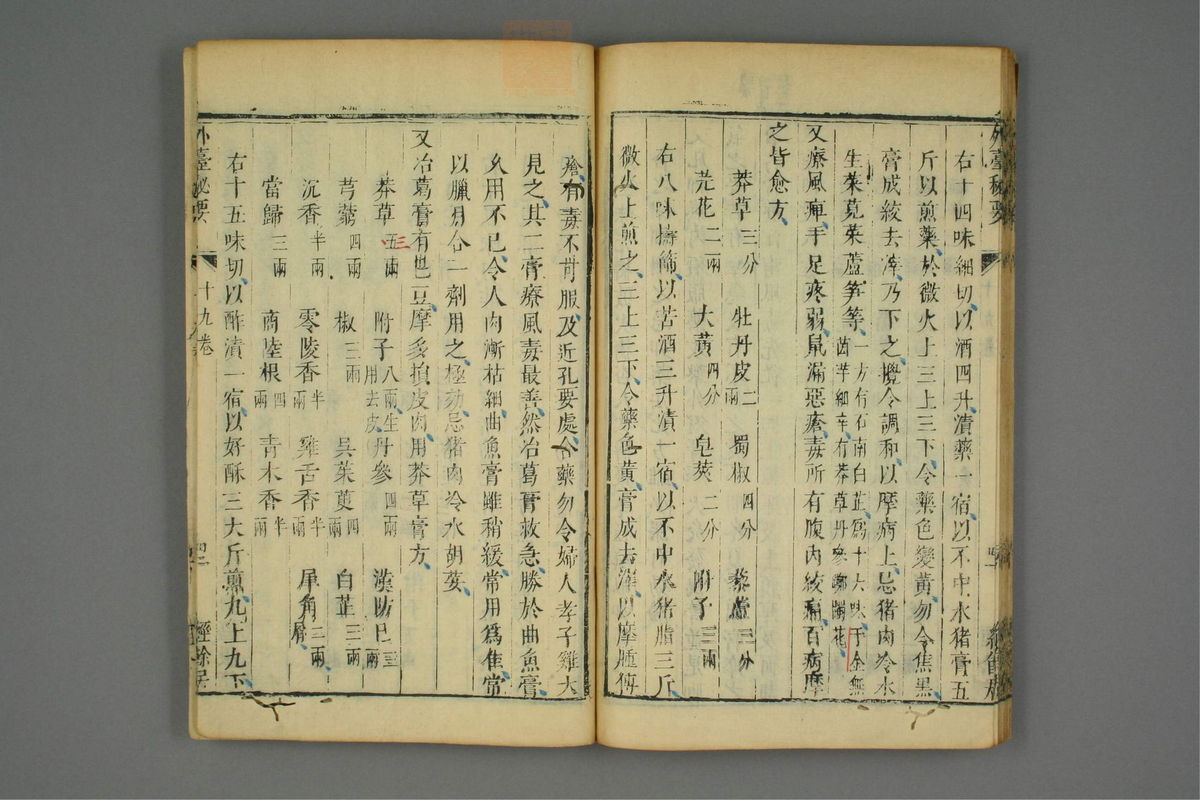 外臺秘要
右十四味細切以酒四升漬藥一宿以不中水猪膏五
斤以煎藥於微火上三上三下令藥色變黃勿令焦黑
膏成絞去滓乃下之攪令調和以摩病上忌猪肉冷水
生菜莧菜蘆笋等一方有石南白芷爲十六味千金無茵芋細辛有莽草丹參躑躅花
又療風痺手足疼弱鼠漏惡瘡毒所有腹內絞痛百病摩
之皆愈方
莽草三分 牡丹皮二兩 蜀椒四分 藜蘆三分
芫花二兩 大黃四分 皂莢二分 附子三兩
右八味擣篩以苦酒三升漬一宿以不中水猪脂三斤
微火上煎之三上三下令藥色黃膏成去滓以摩腫傅
瘡有毒不可服及近孔要處合藥勿令婦人孝子雞犬
見之其二膏療風毒最善然冶葛膏救急勝於曲魚膏
久用不已令人肉漸枯細曲魚膏雖稍緩常用爲佳常
以臘月合一劑用之極効忌猪肉冷水胡荽
又冶葛膏有巴豆摩多損皮肉用莽草膏方
莽草五兩 三 附子八兩生用去皮 丹參四兩 漢防已三兩
芎藭四兩 椒三兩 吳茱萸四兩 白芷三兩
沉香半兩 零陵香半兩 雞舌香半兩 犀角二兩屑
當歸三兩 商陸根四兩 青木香半兩
右十五味切以酢漬一宿以好酥三大斤煎九上九下
外臺秘要 十九卷 經餘居